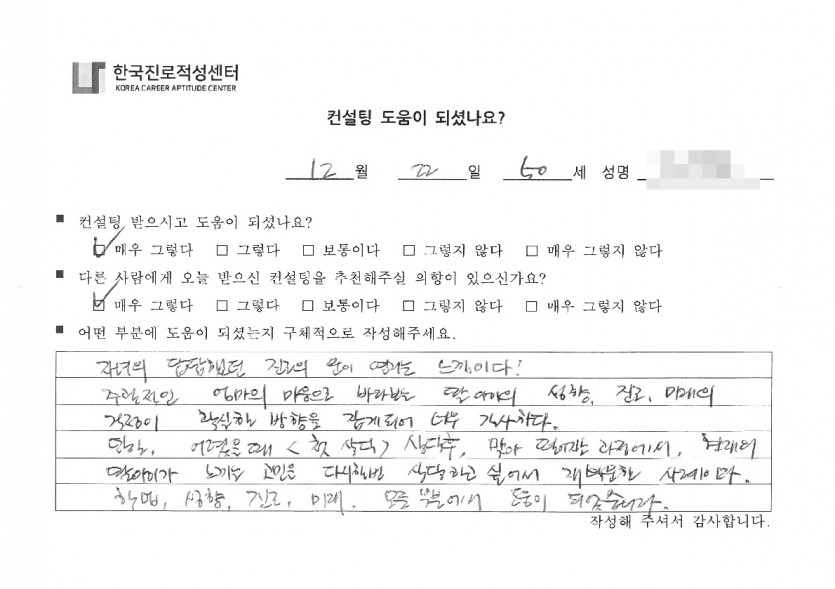 한국진로적성센터
KOREA CAREER APTITUDE CENTER
컨설팅 도움이 되셨나요?
12 월 22 일 50 세 성명
■ 컨설팅 받으시고 도움이 되셨나요?
☑ 매우 그렇다 □ 그렇다 □ 보통이다 □ 그렇지 않다 □ 매우 그렇지 않다
■ 다른 사람에게 오늘 받으신 컨설팅을 추천해주실 의향이 있으신가요?
☑ 매우 그렇다 □ 그렇다 □ 보통이다 □ 그렇지 않다 □ 매우 그렇지 않다
■ 어떤 부분에 도움이 되셨는지 구체적으로 작성해주세요.
자녀의 답답했던 진로의 문이 열리는 느낌이다!
주관적인 엄마의 마음으로 바라보는 딸아이의 성향, 진로, 미래의
걱정이 확실한 방향을 잡게되어 너무 감사하다.
어렸을때 <첫 상담> 상담후, 맞아 떨어지는 과정에서, 현재의
딸아이가 느끼는 고민을 다시한번 상담하고 싶어서 재방문한 사례이다.
학업, 성향, 진로, 미래. 모든 부분에서 도움이 되었습니다.
작성해 주셔서 감사합니다.